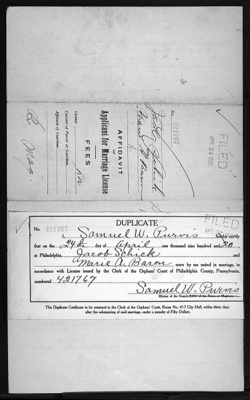 FILED
No. 421767
Jacob Schick
AFFIDAVIT
OF
Applicant for Marriage License
FEES
License
Consent of Parent or Guardian
Affidavit of Guardian
FILED
DUPLICATE
No. 421767
I, Samuel W. Purvis hereby certify
that on the 24th day of April one thousand nine hundred and 20
at Philadelphia, Jacob Schick
and Marie A. Baron were by me united in marriage, in
accordance with License issued by the Clerk of the Orphans' Court of Philadelphia County, Pennsylvania,
numbered 421767
Samuel W. Purvis
Minister of the Gospel
This Duplicate Certificate to be returned to the Clerk of the Orphans' Court, Room No. 417 City Hall within thirty days
after the solemnizing of said marriage, under a penalty of Fifty Dollars.